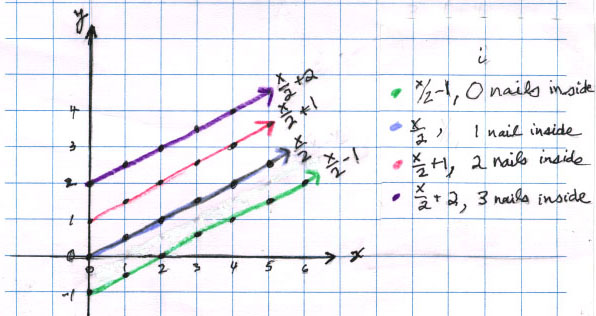 y
x/2+2
x/2+1
x/2
x/2-1
4
3
2
1
0
-1
0 1 2 3 4 5 6 x
i
x/2-1, 0 nails inside
x/2, 1 nail inside
x/2+1, 2 nails inside
x/2+2, 3 nails inside